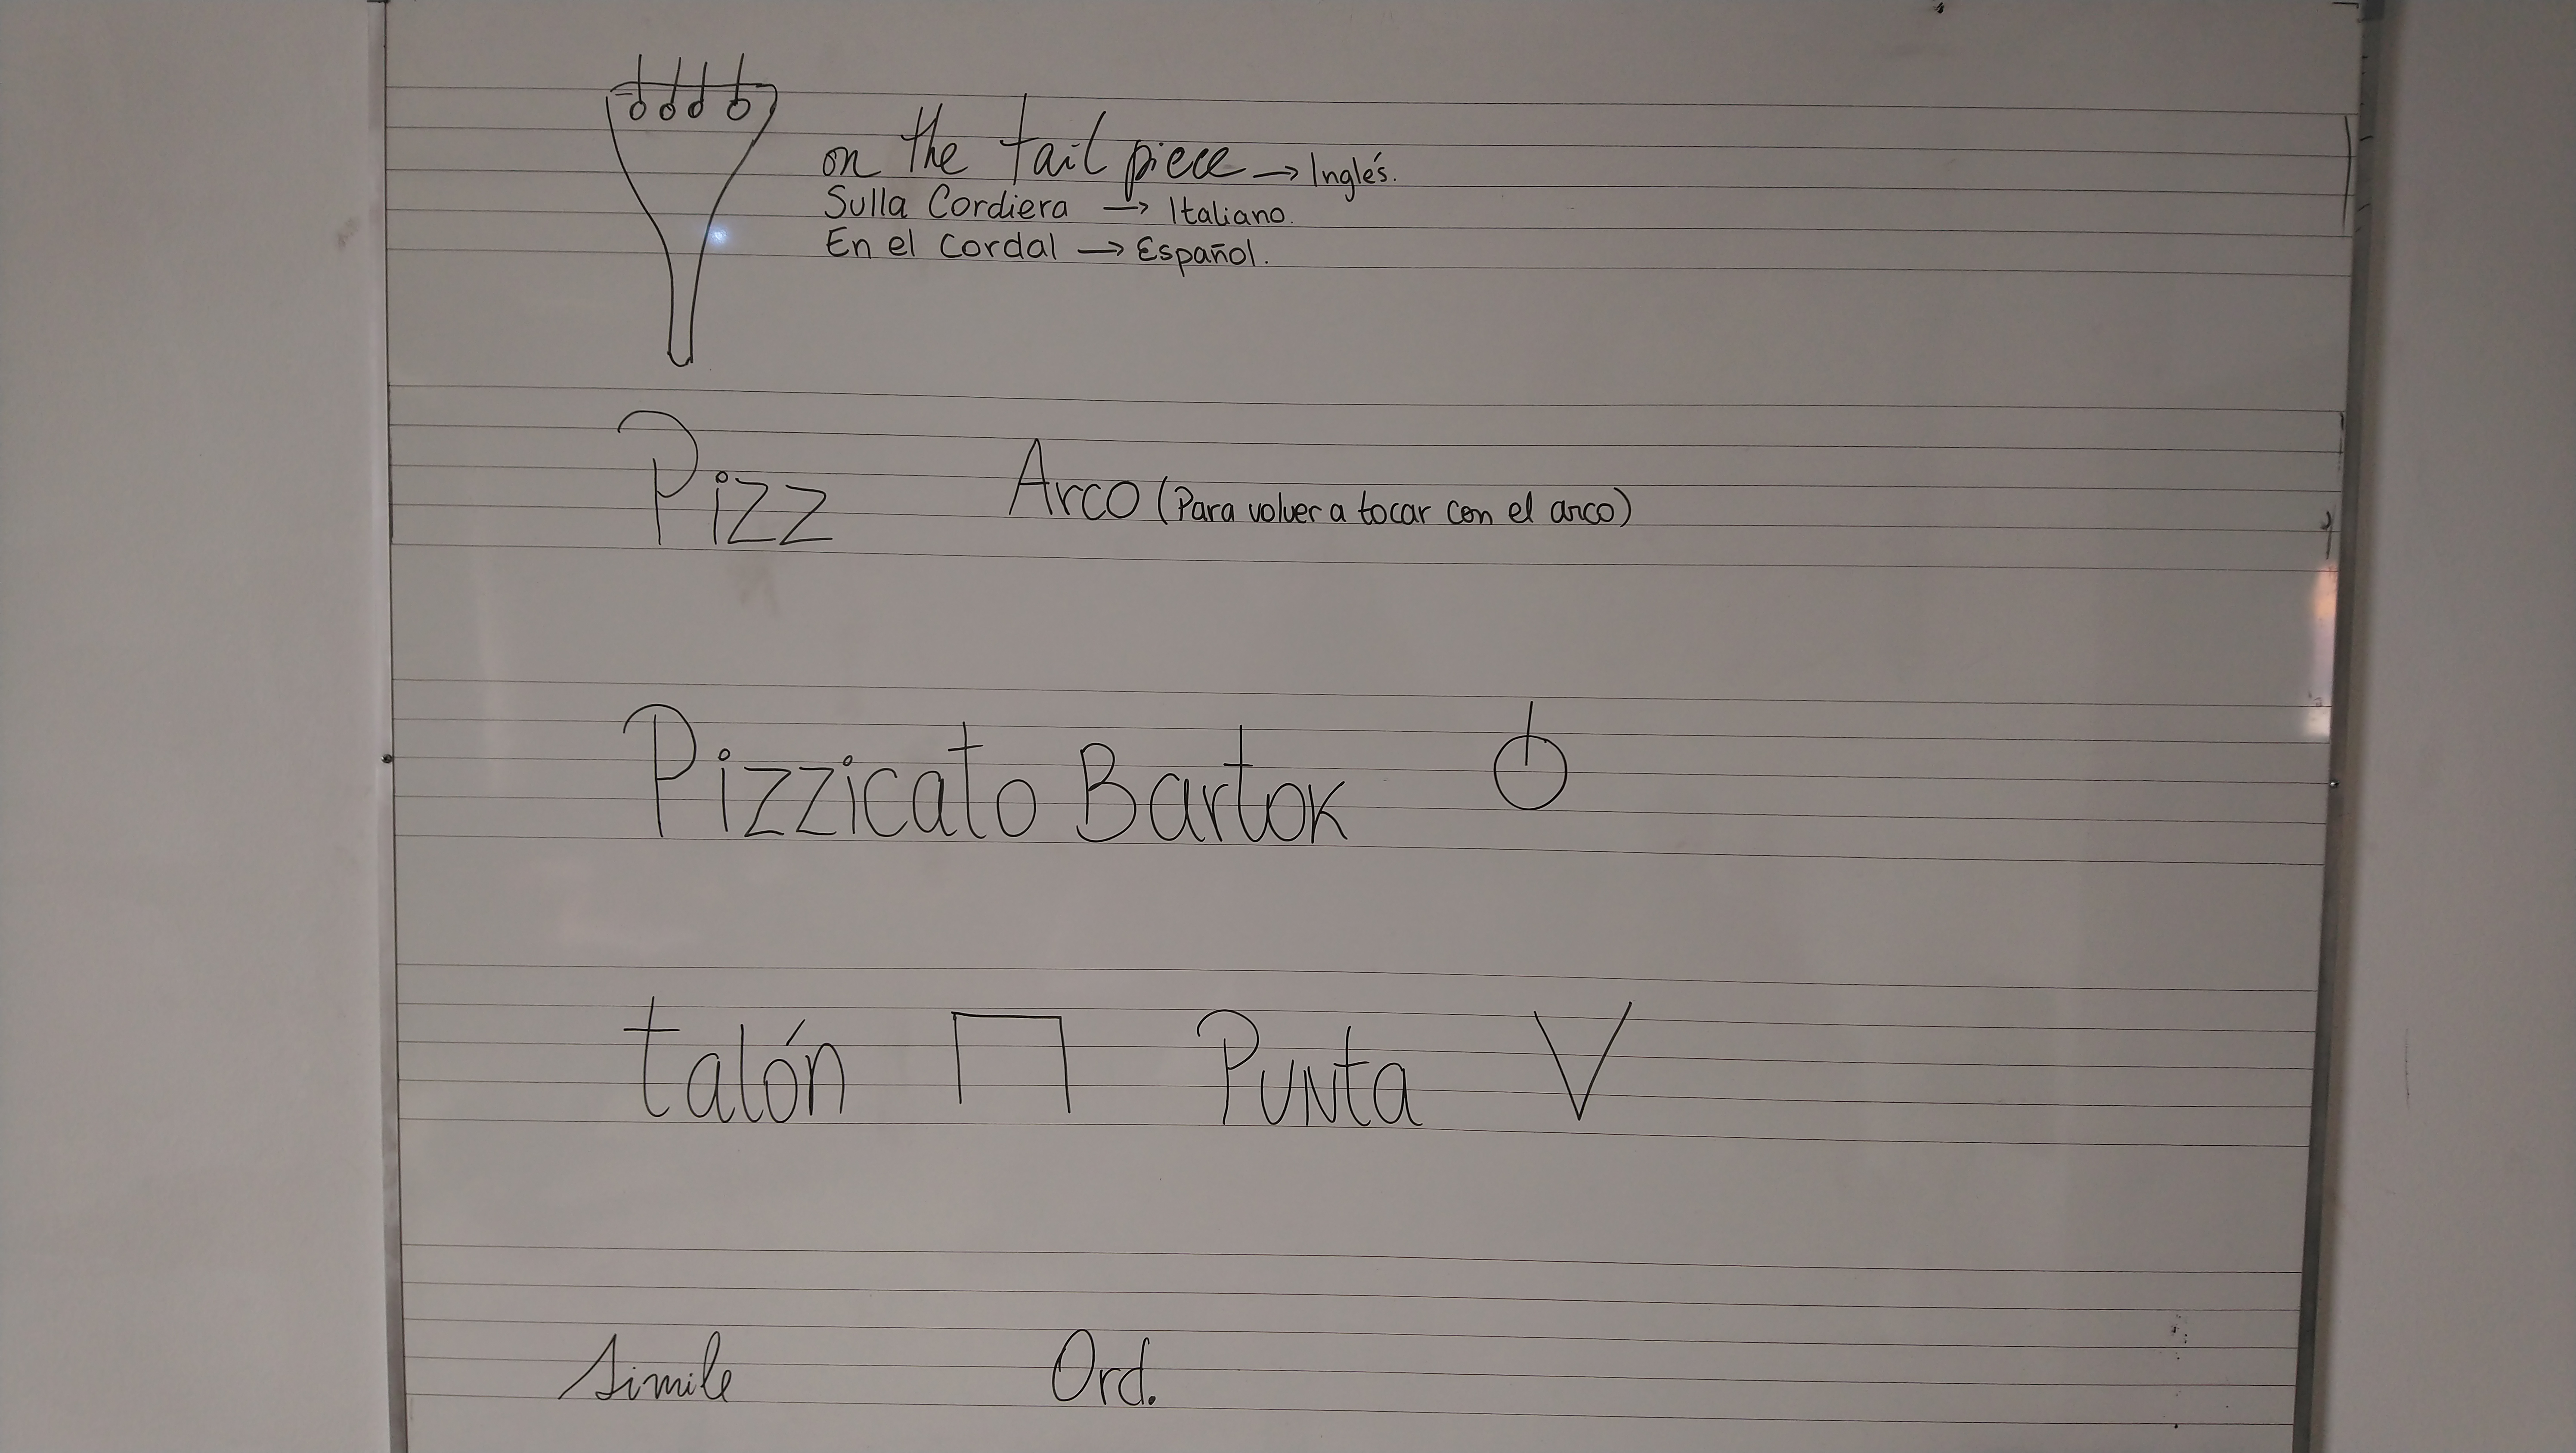 on the tail piece → Inglés.
Sulla Cordiera → Italiano.
En el Cordal → Español.
Pizz Arco (Para volver a tocar con el arco)
Pizzicato Bartok
talón Punta V
Simile Ord.